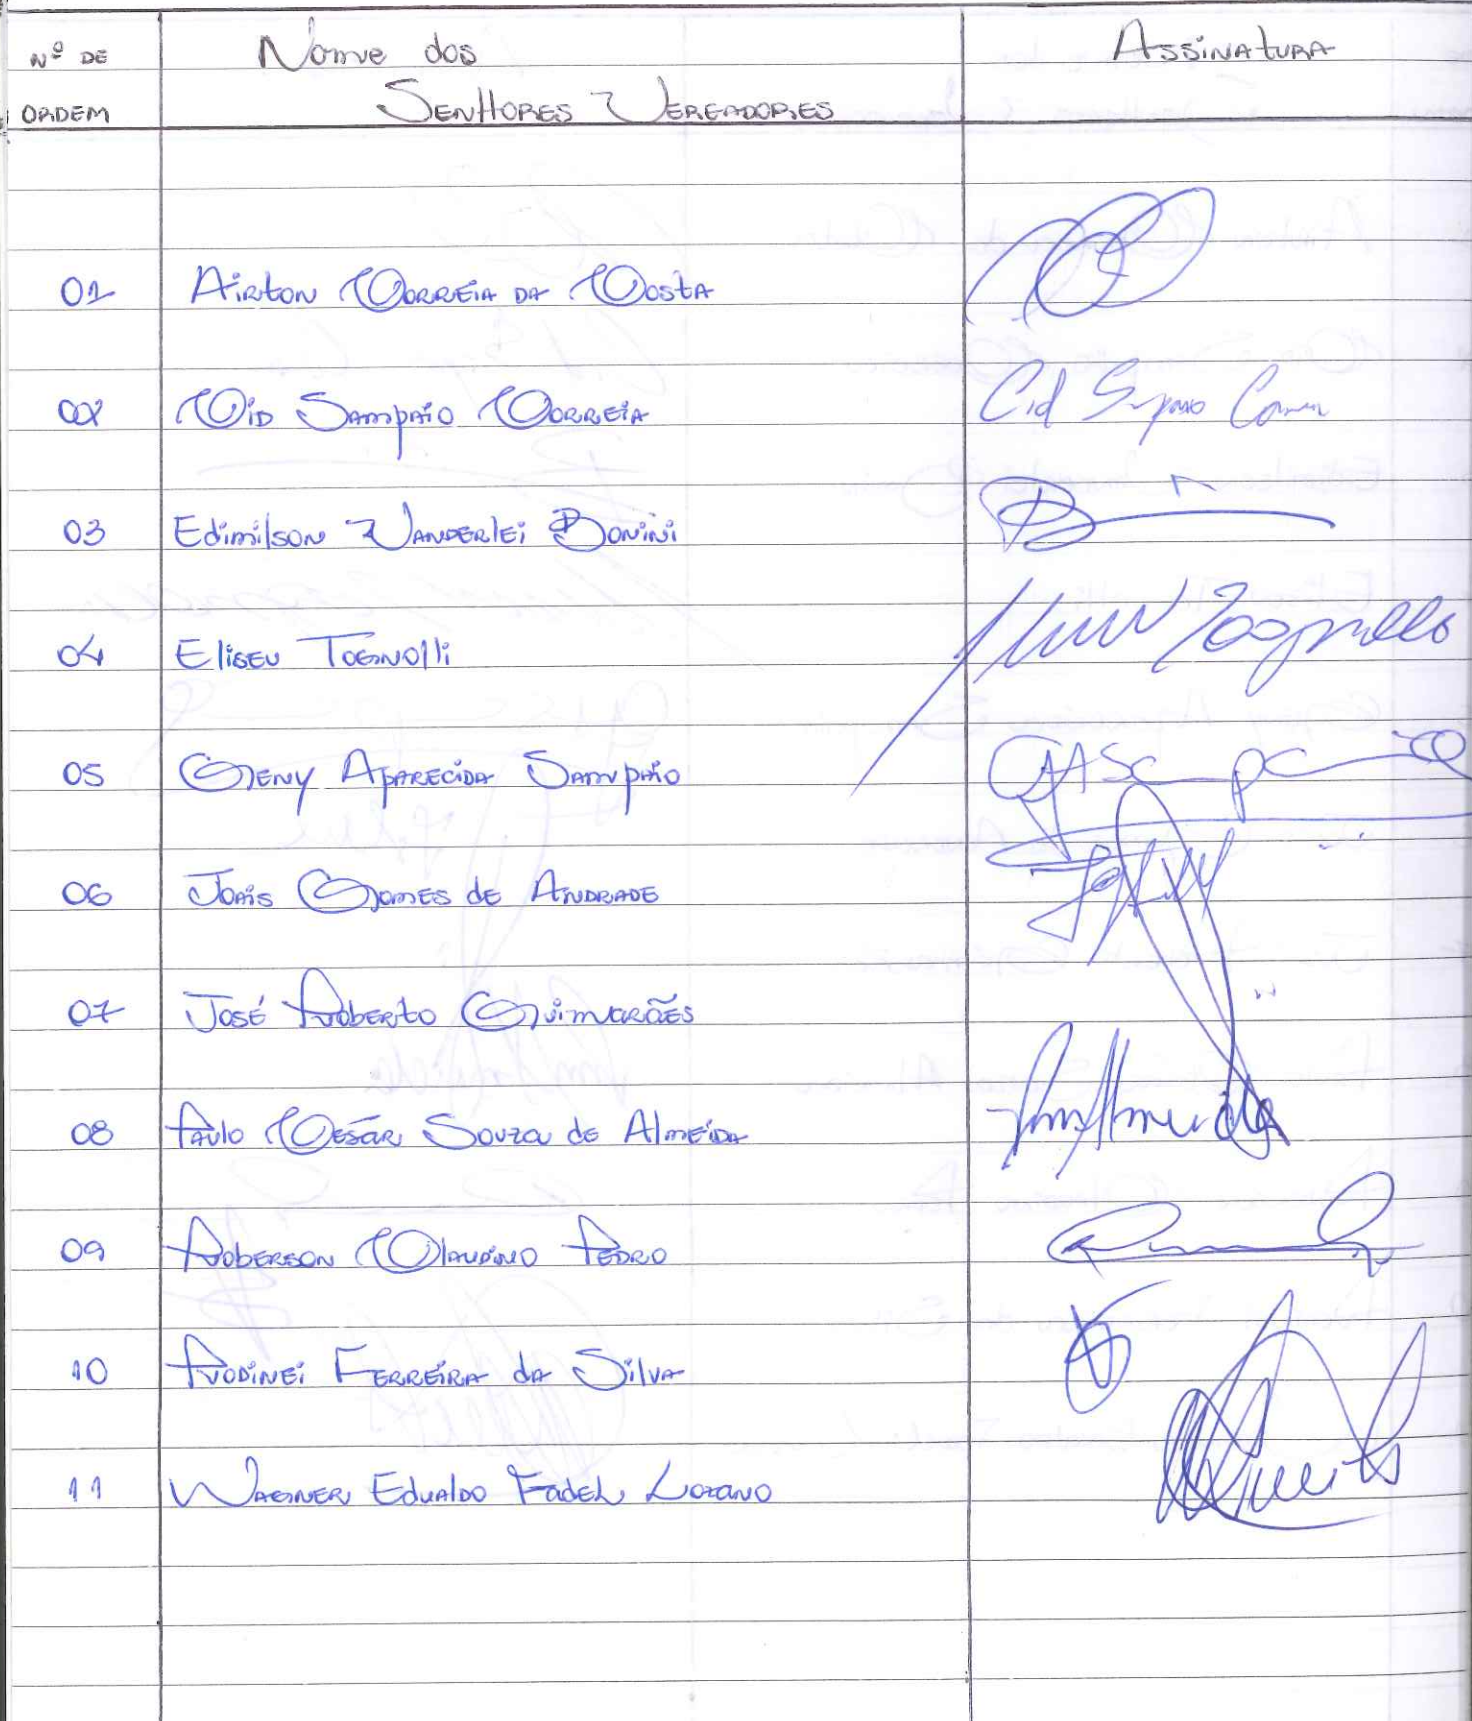 Nº DE Nome dos Assinatura
ORDEM Senhores Vereadores
01 Airton Correia da Costa
02 Cid Sampaio Correia Cid
03 Edimilson Vanderlei Bonini
04 Eliseu Tognolli
05 Geny Aparecida Sampaio
06 Joais Gomes de Andrade
07 José Roberto Guimarães
08 Paulo Cesár Souza de Almeida
09 Roberson Claudino Pedro
10 Rodinei Ferreira da Silva
11 Wagner Edualdo Fadel Lozano